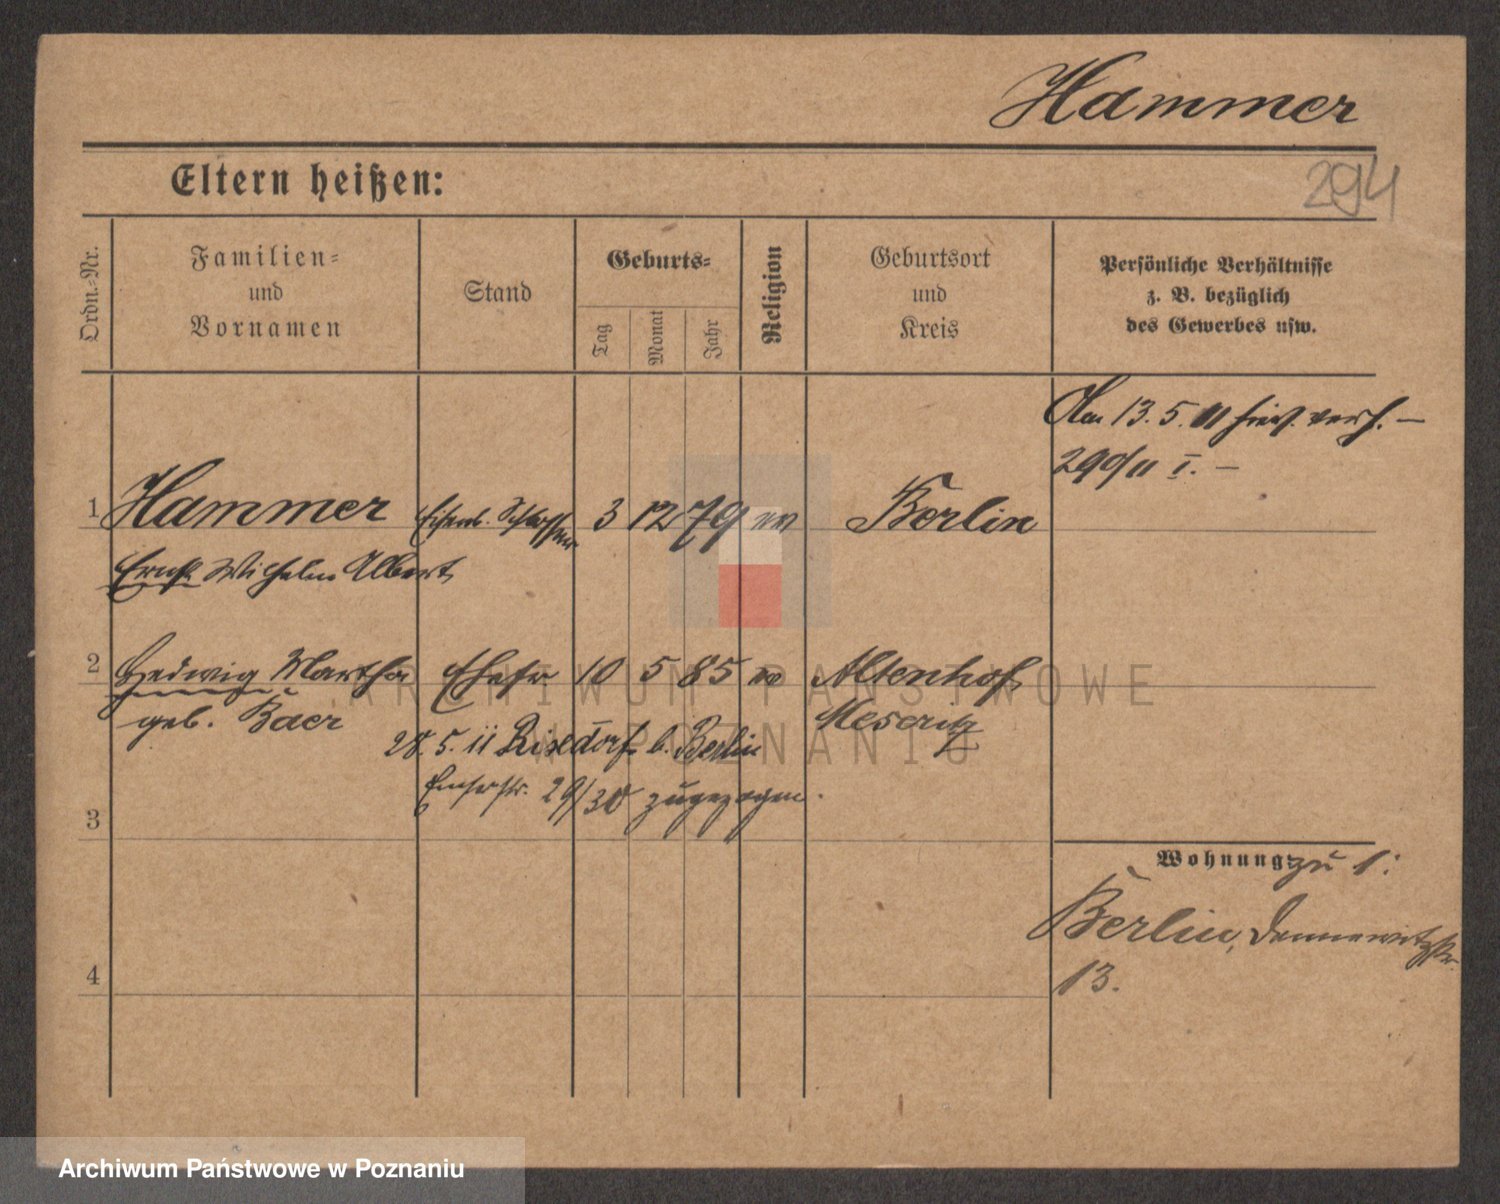 Hammer
294
Eltern heißen:
Ordn.-Nr.
Familien-
und
Vornamen
Stand
Geburts-
Tag
Monat
Jahr
Religion
Geburtsort
und
Kreis
Persönliche Verhältnisse
z. B. bezüglich
des Gewerbes usw.
Am 13. 5. 11 hies. verh. —
290/11 I. —
1 Hammer Eisenb. Schlosser 3 12 79 ev Berlin
Ernst Wilhelm Albert
2 Hedwig Martha Ehefr 10 5 85 ev Altenhof
geb. Baer Meseritz
28. 5. 11 Rixdorf b. Berlin
Emserstr. 29/30 zugezogen.
3
Wohnung: zu 1:
Berlin, Dennewitzstr.
13.
4
ARCHIWUM PAŃSTWOWE
W POZNANIU
Archiwum Państwowe w Poznaniu